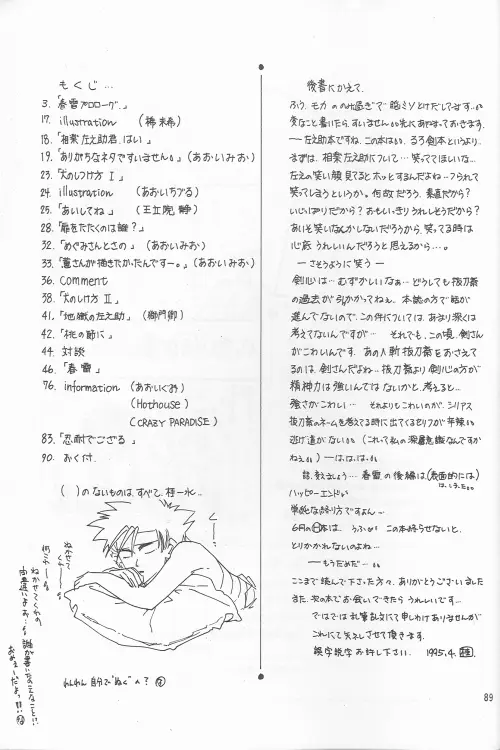 もくじ…
3.「春雷プロローグ.」
17. illustration (柿 未希)
18.「相楽左之助君、はい」
19.「ありがちなネタですいません。」(あおいみお)
23.「犬のしつけ方 I」
24. illustration (あおいちづる)
25.「あいしてね」(王立院 静)
28.「扉をたたくのは誰?」
32.「めぐみさんとさの」(あおいみお)
33.「薫さんが描きたかったんですー。」(あおいみお)
36. Comment
38.「犬のしつけ方 II」
41.「地獄の左之助」(御門卿)
42.「桃の節に」
44. 対談
46.「春雷」
76. information (あおいくみ)
(HotHouse)
(CRAZY PARADISE)
83.「忍耐でござる」
90. おくづけ.
( )のないものは、すべて、柊一水..
ねかせてくれの
わんわん 自分で"ぬぐ"へ?
後書にかえて.
ふう、モカののみ過ぎで脳ミソとけだしてます..
変なこと書いたら、すいません。先にあやまっておきます.
―左之助本ですね、この本は。るろ剣本というより..
まずは、相楽左之助について…笑っててほしいな..
左之の笑い顔見てると、ホッとするんだよね…つられて
笑ってしまうというか。何故だろう. 素直だから?
いじっぱりだから? おもいっきりうれしそうだから?
あいそ笑いなんかしないだろうから、笑ってる時は
心底うれしいんだろうと思えるから…。
―さそうように笑う―
剣心は…むずかしいなぁ…どうしても抜刀斎
の過去が引っかかってねぇ. 本誌の方で話が
進んでないので、この件については、あまり深くは
考えてないんですが… それでも、この頃、剣さん
がこわいんです. あの人斬抜刀斎をおさえて
るのは、剣さんだよね.. 抜刀斎より剣心の方が
精神力は強いんではないかと、考えると…
強さがこわい… それよりもこわいのが、シリアス
抜刀斎のネームを考えてる時に出てくるセリフが年号い
逃げ道がない。(これって私の深層意識なんですか
ねぇ。) ―は.は.は.
話、変えましょう… 春雷の後編は、(表面的には)
ハッピーエンドい
単純な終り方ですよん…
6月の本は、うふふ この本終らせないと、
とりかかれないのよね…
―もうだめだ―
ここまで読んで下さった方々、ありがとうございました
また、次の本でお会いできたら うれしいです...
ではでは乱筆乱文にて申しわけありませんが
これにて失礼させて頂きます.
誤字脱字お許し下さい. 1995.4.
89